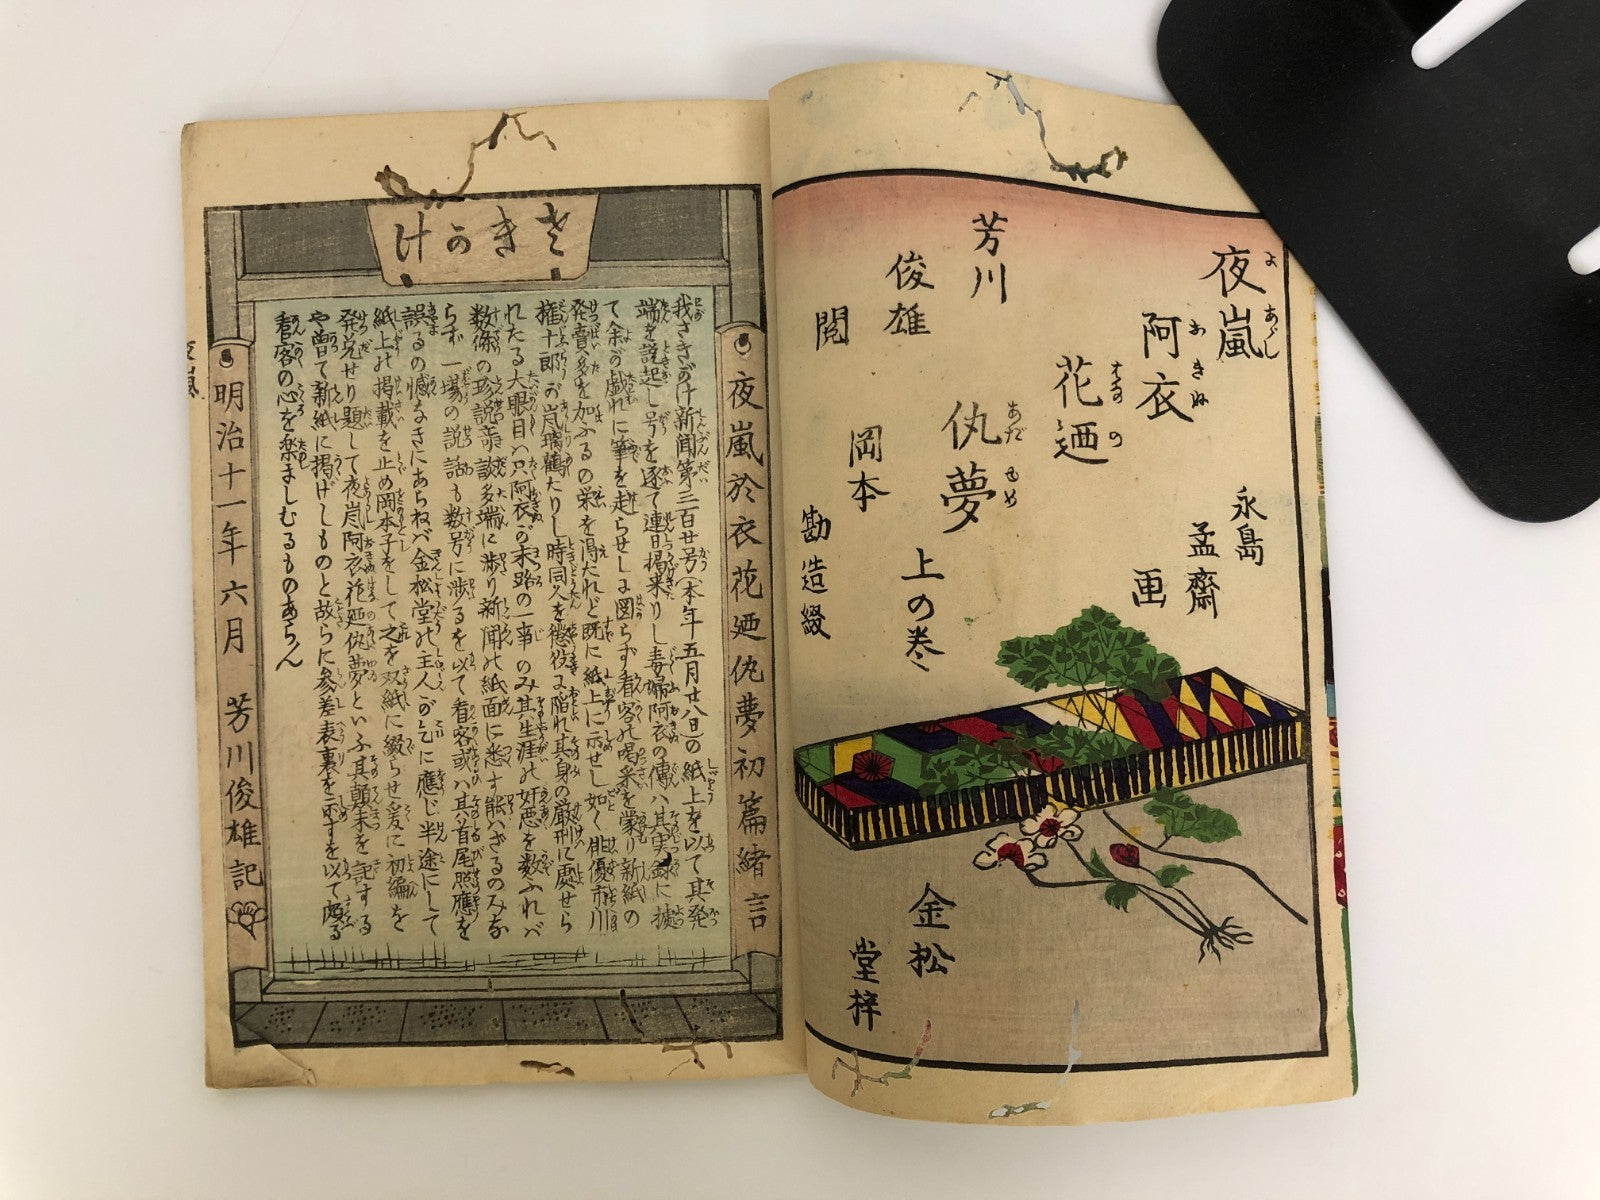 夜嵐
よ あらし
阿衣
おきぬ
花廼
はなの
仇夢
あだゆめ
上の巻
芳川
俊雄
閲
岡本
勘造綴
永島
孟齋
画
金松
堂梓
さきがけ
夜嵐於衣花廼仇夢初篇緒言
我さきがけ新聞第三百廿号(本年五月廿八日)の紙上を以て其発
端を説起し号を逐て連日掲来りし毒婦阿衣の傳ハ其実録に據
て余が戯れに筆を走らせしに図らず看客の喝采を蒙り新紙の
発賣多を加ふるの栄を得たれど既に紙上に示せし如く俳優市川
権十郎が嵐璃鶴たりし時同人を懲役に陥れ其身の厳刑に處せら
れたる大眼目ハ只阿衣が末路の一事のみ其生涯の奸悪を数ふれバ
数條の珍説奇談多端に渉り新聞の紙面に悉す能ハざるのみな
らず一場の説話も数号に渉るを以て看客或ハ其首尾照應を
誤るの憾なきにあらねバ金松堂の主人が乞に應じ半途にして
紙上の掲載を止め岡本子をして之を双紙に綴らせ爰に初編を
発兌せり題して夜嵐阿衣花廼仇夢といふ其顛末を記する
や曽て新紙に掲げしものと故らに参差表裏を示すを以て頗る
看客の心を楽ましむるものあらん
明治十一年六月 芳川俊雄記
夜嵐